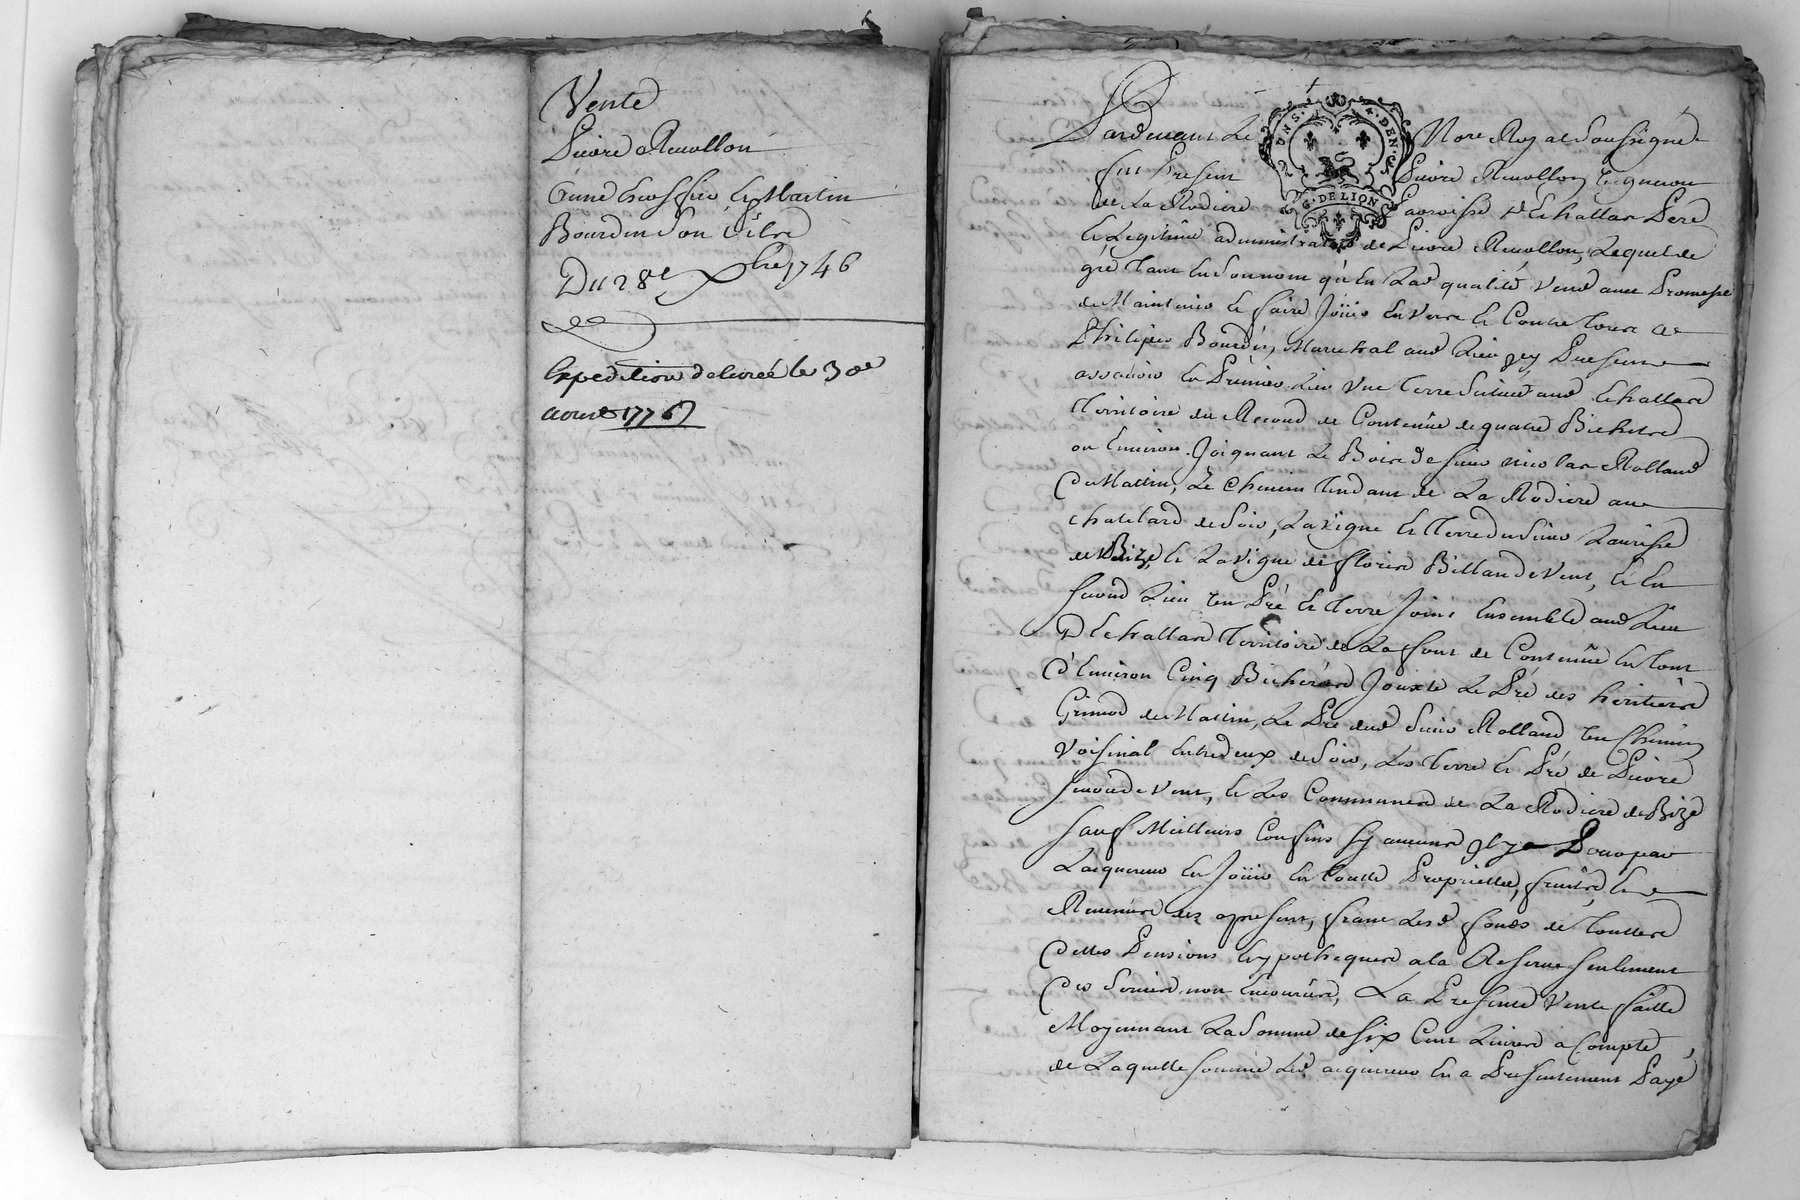 Vente
Pierre Revollon
Bourdin son
Du 28e Xbre 1746
Expedition delivrée le 30e
avril 1776
Pardevant Le Nore Royal Soussigné
fut Present Pierre Revollon vigneron
de La Rodiere Paroisse d'Echallas Pere
et Legitime administrateur de Pierre Revollon, Lequel de
gré tant en son nom qu'en Lade qualité vend avec Promesse
de Maintenir et faire Joüir Envers et Contre tous a
Philipes Bourdin, Marechal aud Lieu icy Present
assavoir en Premier Lieu une Terre Scituée aud Echallas
Territoire du de Contenüe de quatre Bicherées
ou Environ Joignant Le Bois de sieur nicolas Rolland
de Matin, Le Chemin Tendant de La Rodiere au
chatelard de Soir, La vigne et Terre du Sieur
de Bize, et La vigne de fleurie Billand de Vent, et En
second Lieu un Pré et Terre Joint Ensemble aud Lieu
D'Echallas Territoire de La font de Contenüe en tout
d'Environ Cinq Bicherées Jouxte Le Pré des héritiers
Grimod de Matin, Le Pré dud Sieur Rolland un Chemin
Voisinal entredeux de Soir, Les Terre et Pré de Pierre
de Vent, et Les Communes de La Rodiere de Bize
sauf Meilleurs Confins sy aucuns il y a Pour par
L'aquereur en Joüir en toutte Proprietté, fruits, et
Revenus dez apresent, franc Lesd fonds de touttes
dettes Pensions hypotheques a la Reserve seulement
des Servis non Encourüs, La Presente Vente faitte
Moyennant La Somme de Six Cent Livres à Compte
de Laquelle somme Led aquereur En a Presentement Payé
DNS. A.DEN.
G. DE LION